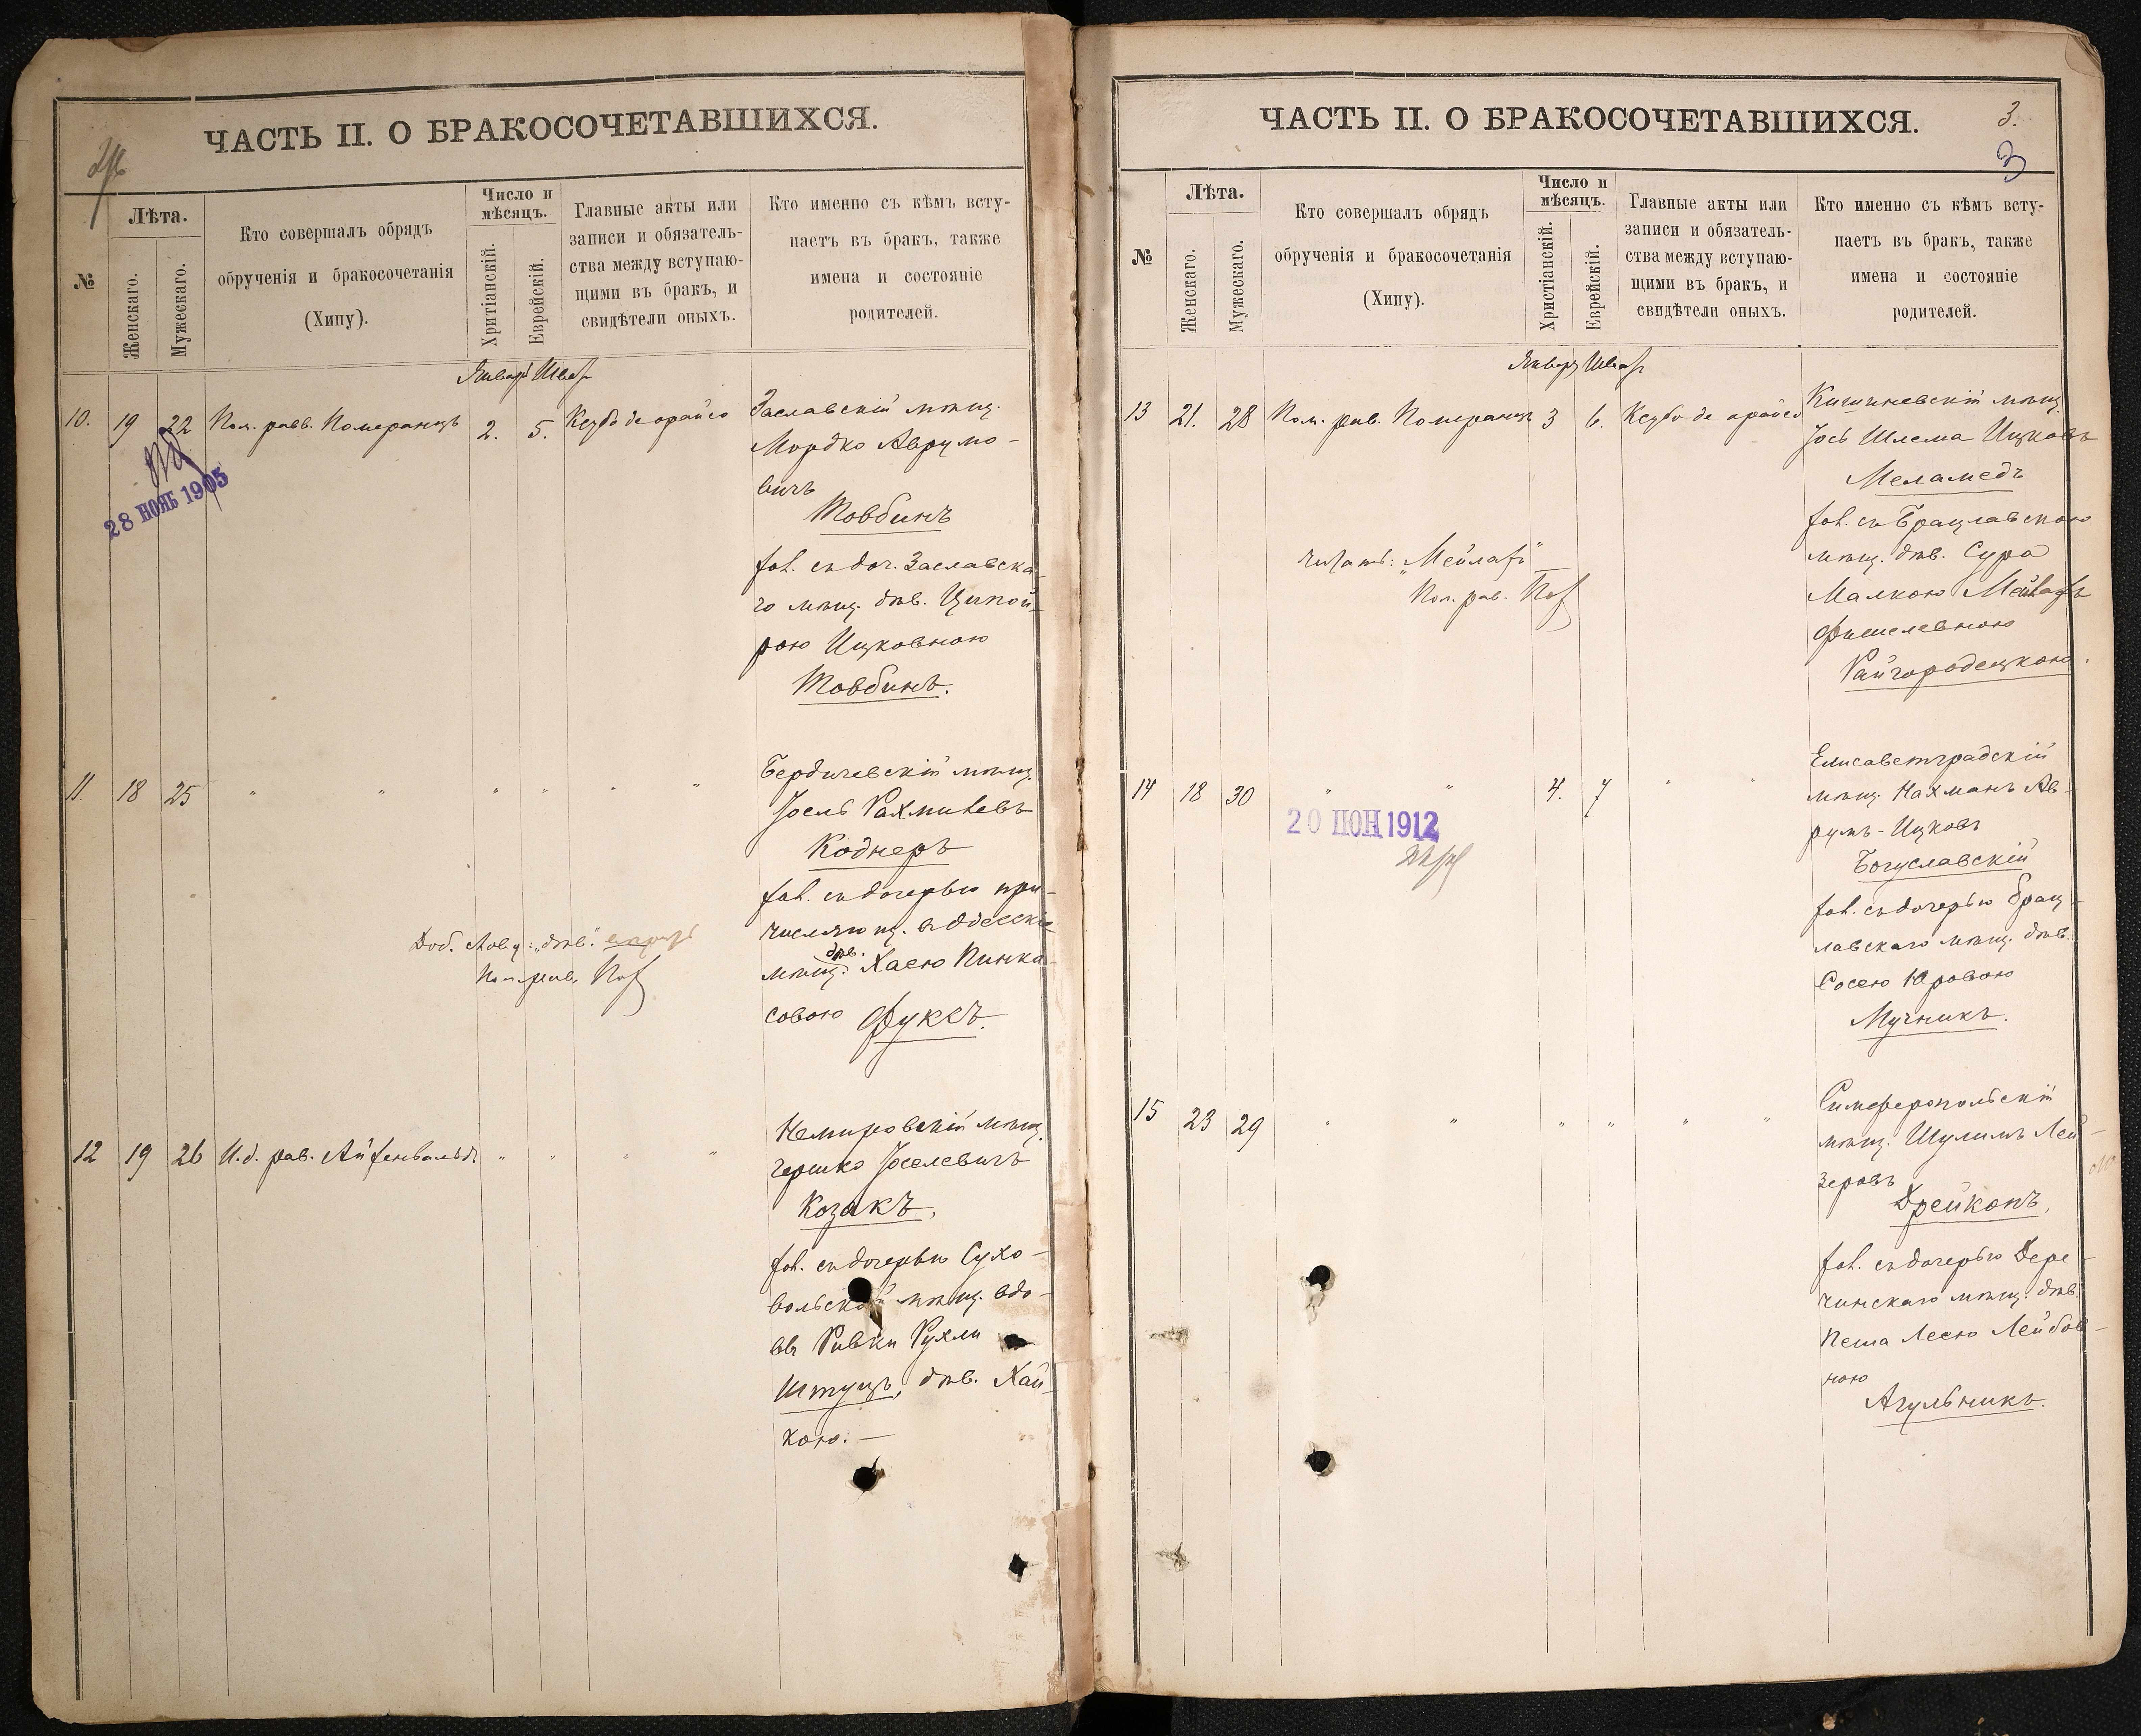 ЧАСТЬ II. О БРАКОСОЧЕТАВШИХСЯ.
№
Лѣта.
Женскаго.
Мужескаго.
Кто совершалъ обрядъ
обрученія и бракосочетанія
(Хипу).
Число и
мѣсяцъ.
Хритіанскій.
Еврейскій.
Главные акты или
записи и обязатель-
ства между вступаю-
щими въ бракъ, и
свидѣтели оныхъ.
Кто именно съ кѣмъ всту-
паетъ въ бракъ, также
имена и состояніе
родителей.
Январ Шват
10. 19 22 Пом. равв. Померанцъ 2. 5. Ксубо де орайсо
28 НОЯБ 1905
Заславскій мѣщ.
Мордко Аврумо-
вичъ
Товбинъ
зак. съ доч. Заславска-
го мѣщ. дѣв. Ципой-
рою Ицковною
Товбинъ.
11. 18 25 " " " " " "
Бердичевскій мѣщ.
Іосель Рахмилевъ
Коднеръ
зак. съ дочерью при-
числяющ. въ Одесскіе
мѣщ. дѣв. Хаею Пинка-
совою Фуксъ.
Доб. слову: "дѣв."
Пом. рав.
12 19 26 И.д. рав. Айзенвальдъ " " " "
Немировскій мѣщ.
Гершко Іоселевичъ
Козакъ.
зак. съ дочерью Сухо-
вольской мѣщ. вдо-
вы Ривки Рухли
Штуцъ, дѣв. Хай-
кою. —
ЧАСТЬ II. О БРАКОСОЧЕТАВШИХСЯ.
3.
3
№
Лѣта.
Женскаго.
Мужескаго.
Кто совершалъ обрядъ
обрученія и бракосочетанія
(Хипу).
Число и
мѣсяцъ.
Христіанскій.
Еврейскій.
Главные акты или
записи и обязатель-
ства между вступаю-
щими въ бракъ, и
свидѣтели оныхъ.
Кто именно съ кѣмъ всту-
паетъ въ бракъ, также
имена и состояніе
родителей.
Январ Шват
13 21. 28 Пом. рав. Померанцъ 3 6. Ксубо де орайсо
Кишиневскій мѣщ.
Іось Шлема Ицковъ
Меламедъ
зак. съ Брацлавскою
мѣщ. дѣв. Сура
Малкою
Фишелевною
Райгородецкою.
Пом. рав.
14 18 30 " " 4. 7 " "
20 ИЮН 1912
Елисаветградскій
мѣщ. Нахманъ Ав-
румъ-Ицковъ
Богуславскій
зак. съ дочерью Брац-
лавскаго мѣщ. дѣв.
Сосею Юровою
Мучникъ.
15 23 29 " " " " " "
Симферопольскій
мѣщ. Шулимъ Лей-
зеровъ
Дрейкопъ,
зак. съ дочерью Дере-
чинскаго мѣщ. дѣв.
Песша Лесею Лейбов-
ною
Агульникъ.